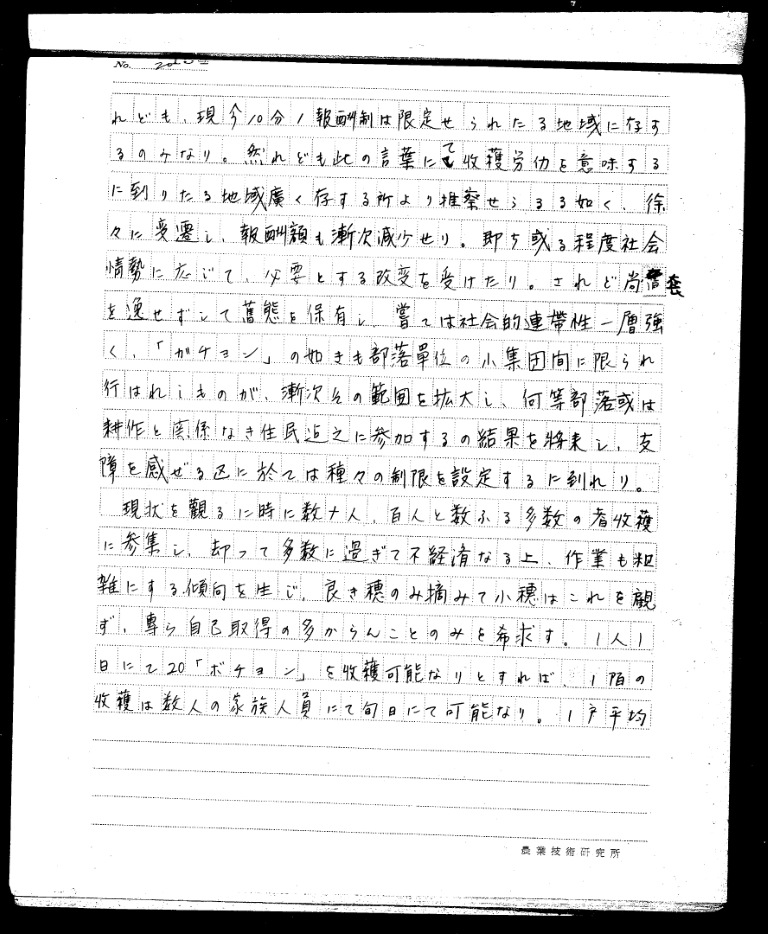 No.
れども、現今10分ノ1報酬制は限定せられたる地域に存す
るのみなり。然れども此の言葉にても收穫労仂を意味する
に到りたる地域廣く存する所より推察せらるる如く、徐
々に変遷し、報酬額も漸次減少せり。即ち或る程度社会
情勢に応じて、必要とする改変を受けたり。されど尚舊套
を逸せずして舊態を保有し、嘗ては社会的連帶性一層強
く、「ガチョン」の如きも部落單位の小集団間に限られ
行はれしものが、漸次その範囲を拡大し、何等部落或は
耕作と関係なき住民迄之に参加するの結果を將来し、支
障を感ぜる区に於ては種々の制限を設定するに到れり。
現状を観るに時に数十人、百人と数ふる多数の者收穫
に参集し、却って多数に過ぎて不経済なる上、作業も粗
雑にする傾向を生じ、良き穂のみ摘みて小穂はこれを顧
ず、專ら自己取得の多からんことのみを希求す。1人1
日にて20「ボチョン」を收穫可能なりとすれば、1陌の
收穫は数人の家族人員にて旬日にて可能なり。1戸平均
農業技術研究所